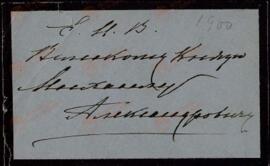 Е. И. В. 1900
Великому Князю
Михаилу
Александровичу